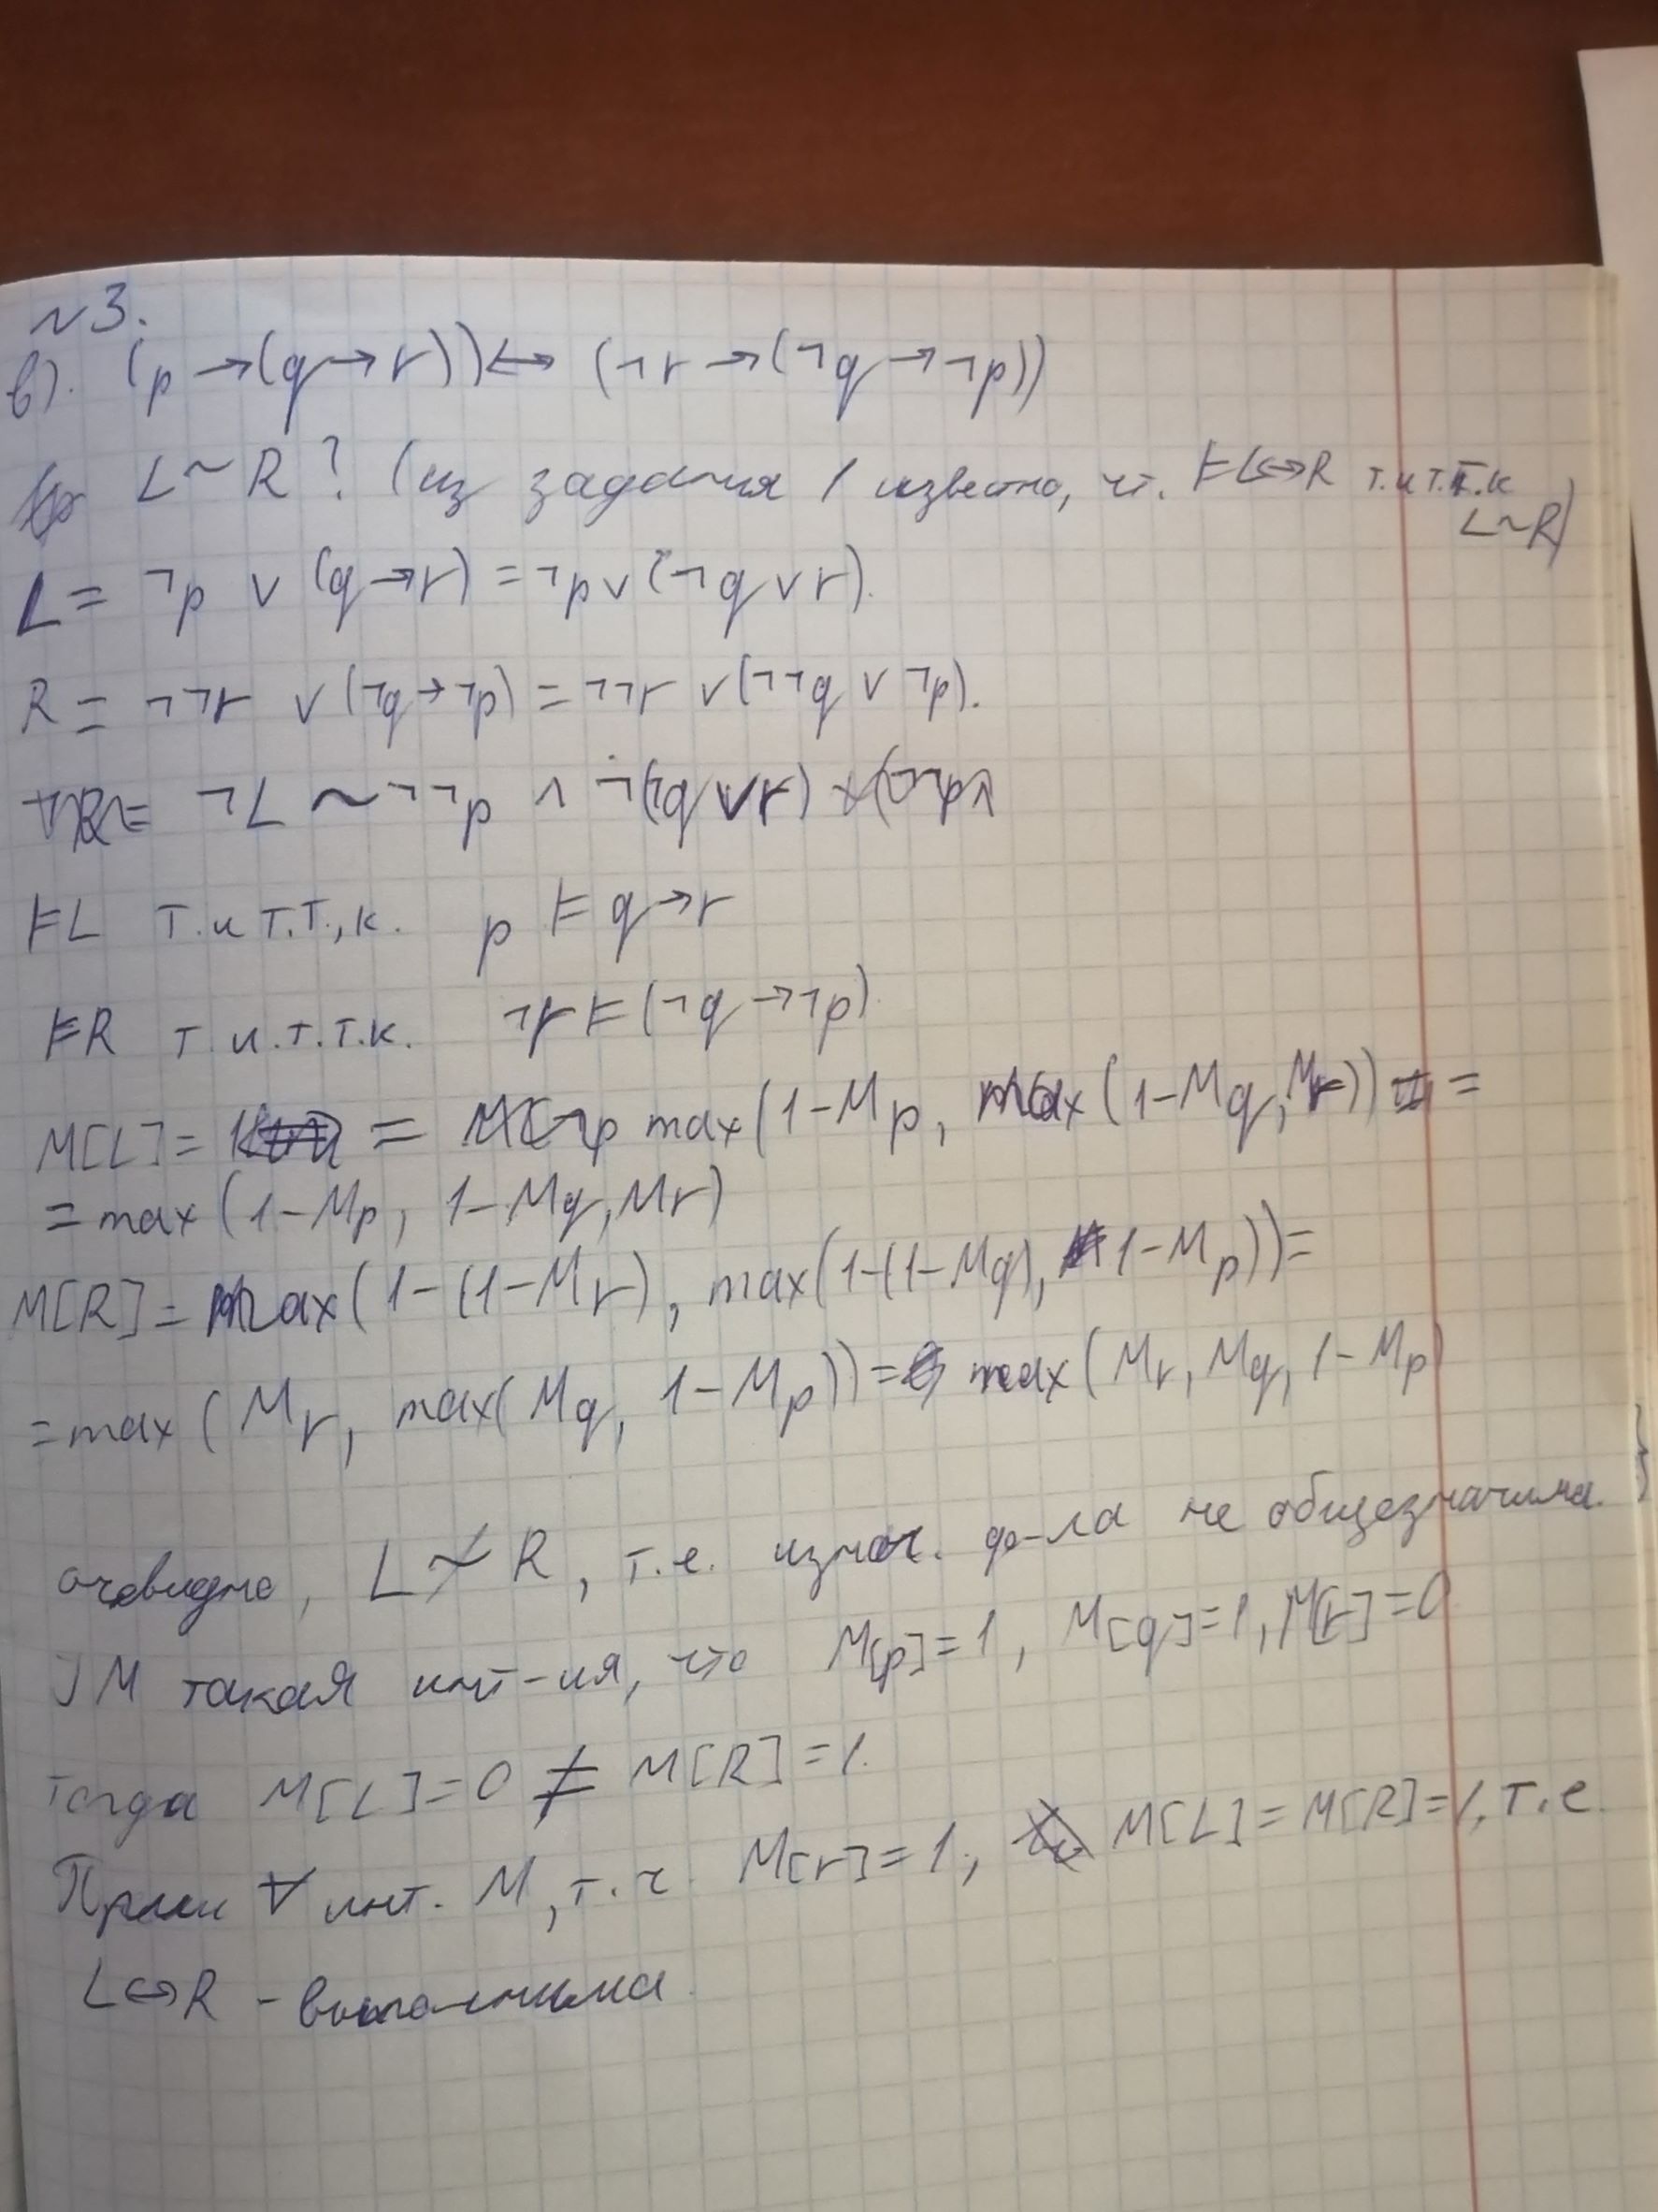 №3.
в). (p→(q→r))↔(¬r→(¬q→¬p))
L~R? (из задания 1 известно, чт. ⊨L↔R т.и т.т.к
L~R)
L= ¬p ∨ (q→r) = ¬p∨(¬q∨r).
R = ¬¬r ∨(¬q→¬p) = ¬¬r ∨(¬¬q ∨ ¬p).
¬L ~ ¬¬p ∧ ¬(¬q∨r)
⊨L т.и т.т.,к. p ⊨ q→r
⊨R т.и.т.т.к. ¬r⊨(¬q→¬p)
M[L]= = max(1-Mp, max(1-Mq,Mr)) =
= max(1-Mp, 1-Mq,Mr)
M[R]= max(1-(1-Mr), max(1-(1-Mq), 1-Mp))=
=max(Mr, max(Mq, 1-Mp))= max(Mr, Mq, 1-Mp)
очевидно, L≁R, т.е. изнач. ф-ла не общезначима.
] M такая инт-ия, что M[p]=1, M[q]=1, M[r]=0
тогда M[L]=0 ≠ M[R]=1.
При ∀ инт. M, т.ч. M[r]=1, M[L]=M[R]=1, т.е.
L↔R - выполнима